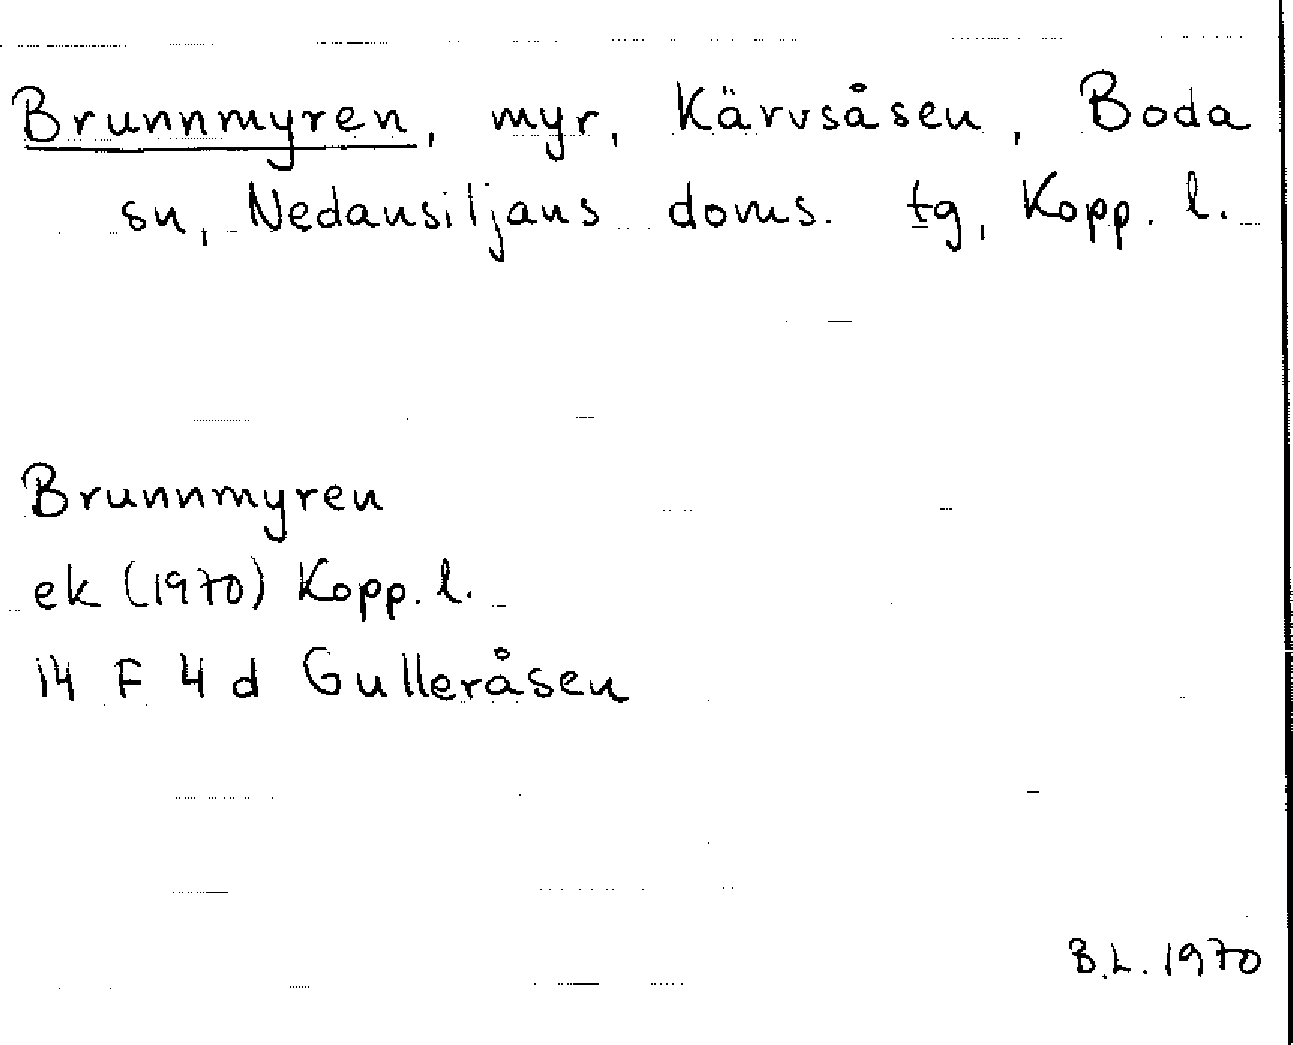 Brunnmyren, myr, Kärvsåsen, Boda
sn, Nedansiljans doms. tg, Kopp. l.
Brunnmyren
ek (1970) Kopp. l.
14 F 4 d Gulleråsen
B.L. 1970